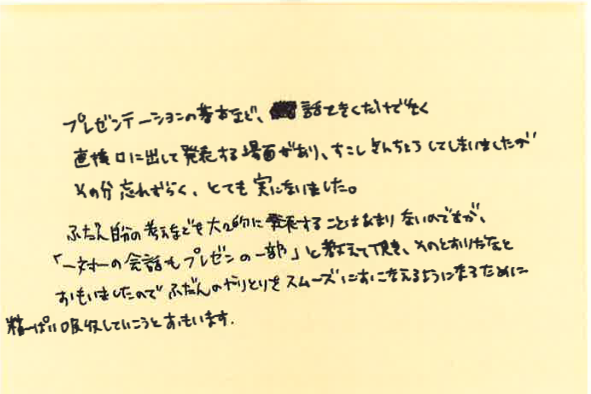 プレゼンテーションの基本など、話をきくだけでなく
直接口に出して発表する場面があり、すこしきんちょうしてしまいましたが
その分忘れずらく、とても実になりました。
ふだん自分の考えなどを大々的に発表することはあまりないのですが、
「一対一の会話もプレゼンの一部」と教えて頂き、そのとおりだなと
おもいましたのでふだんのやりとりをスムーズにおこなえるようになるために
精一ぱい吸収していこうとおもいます.